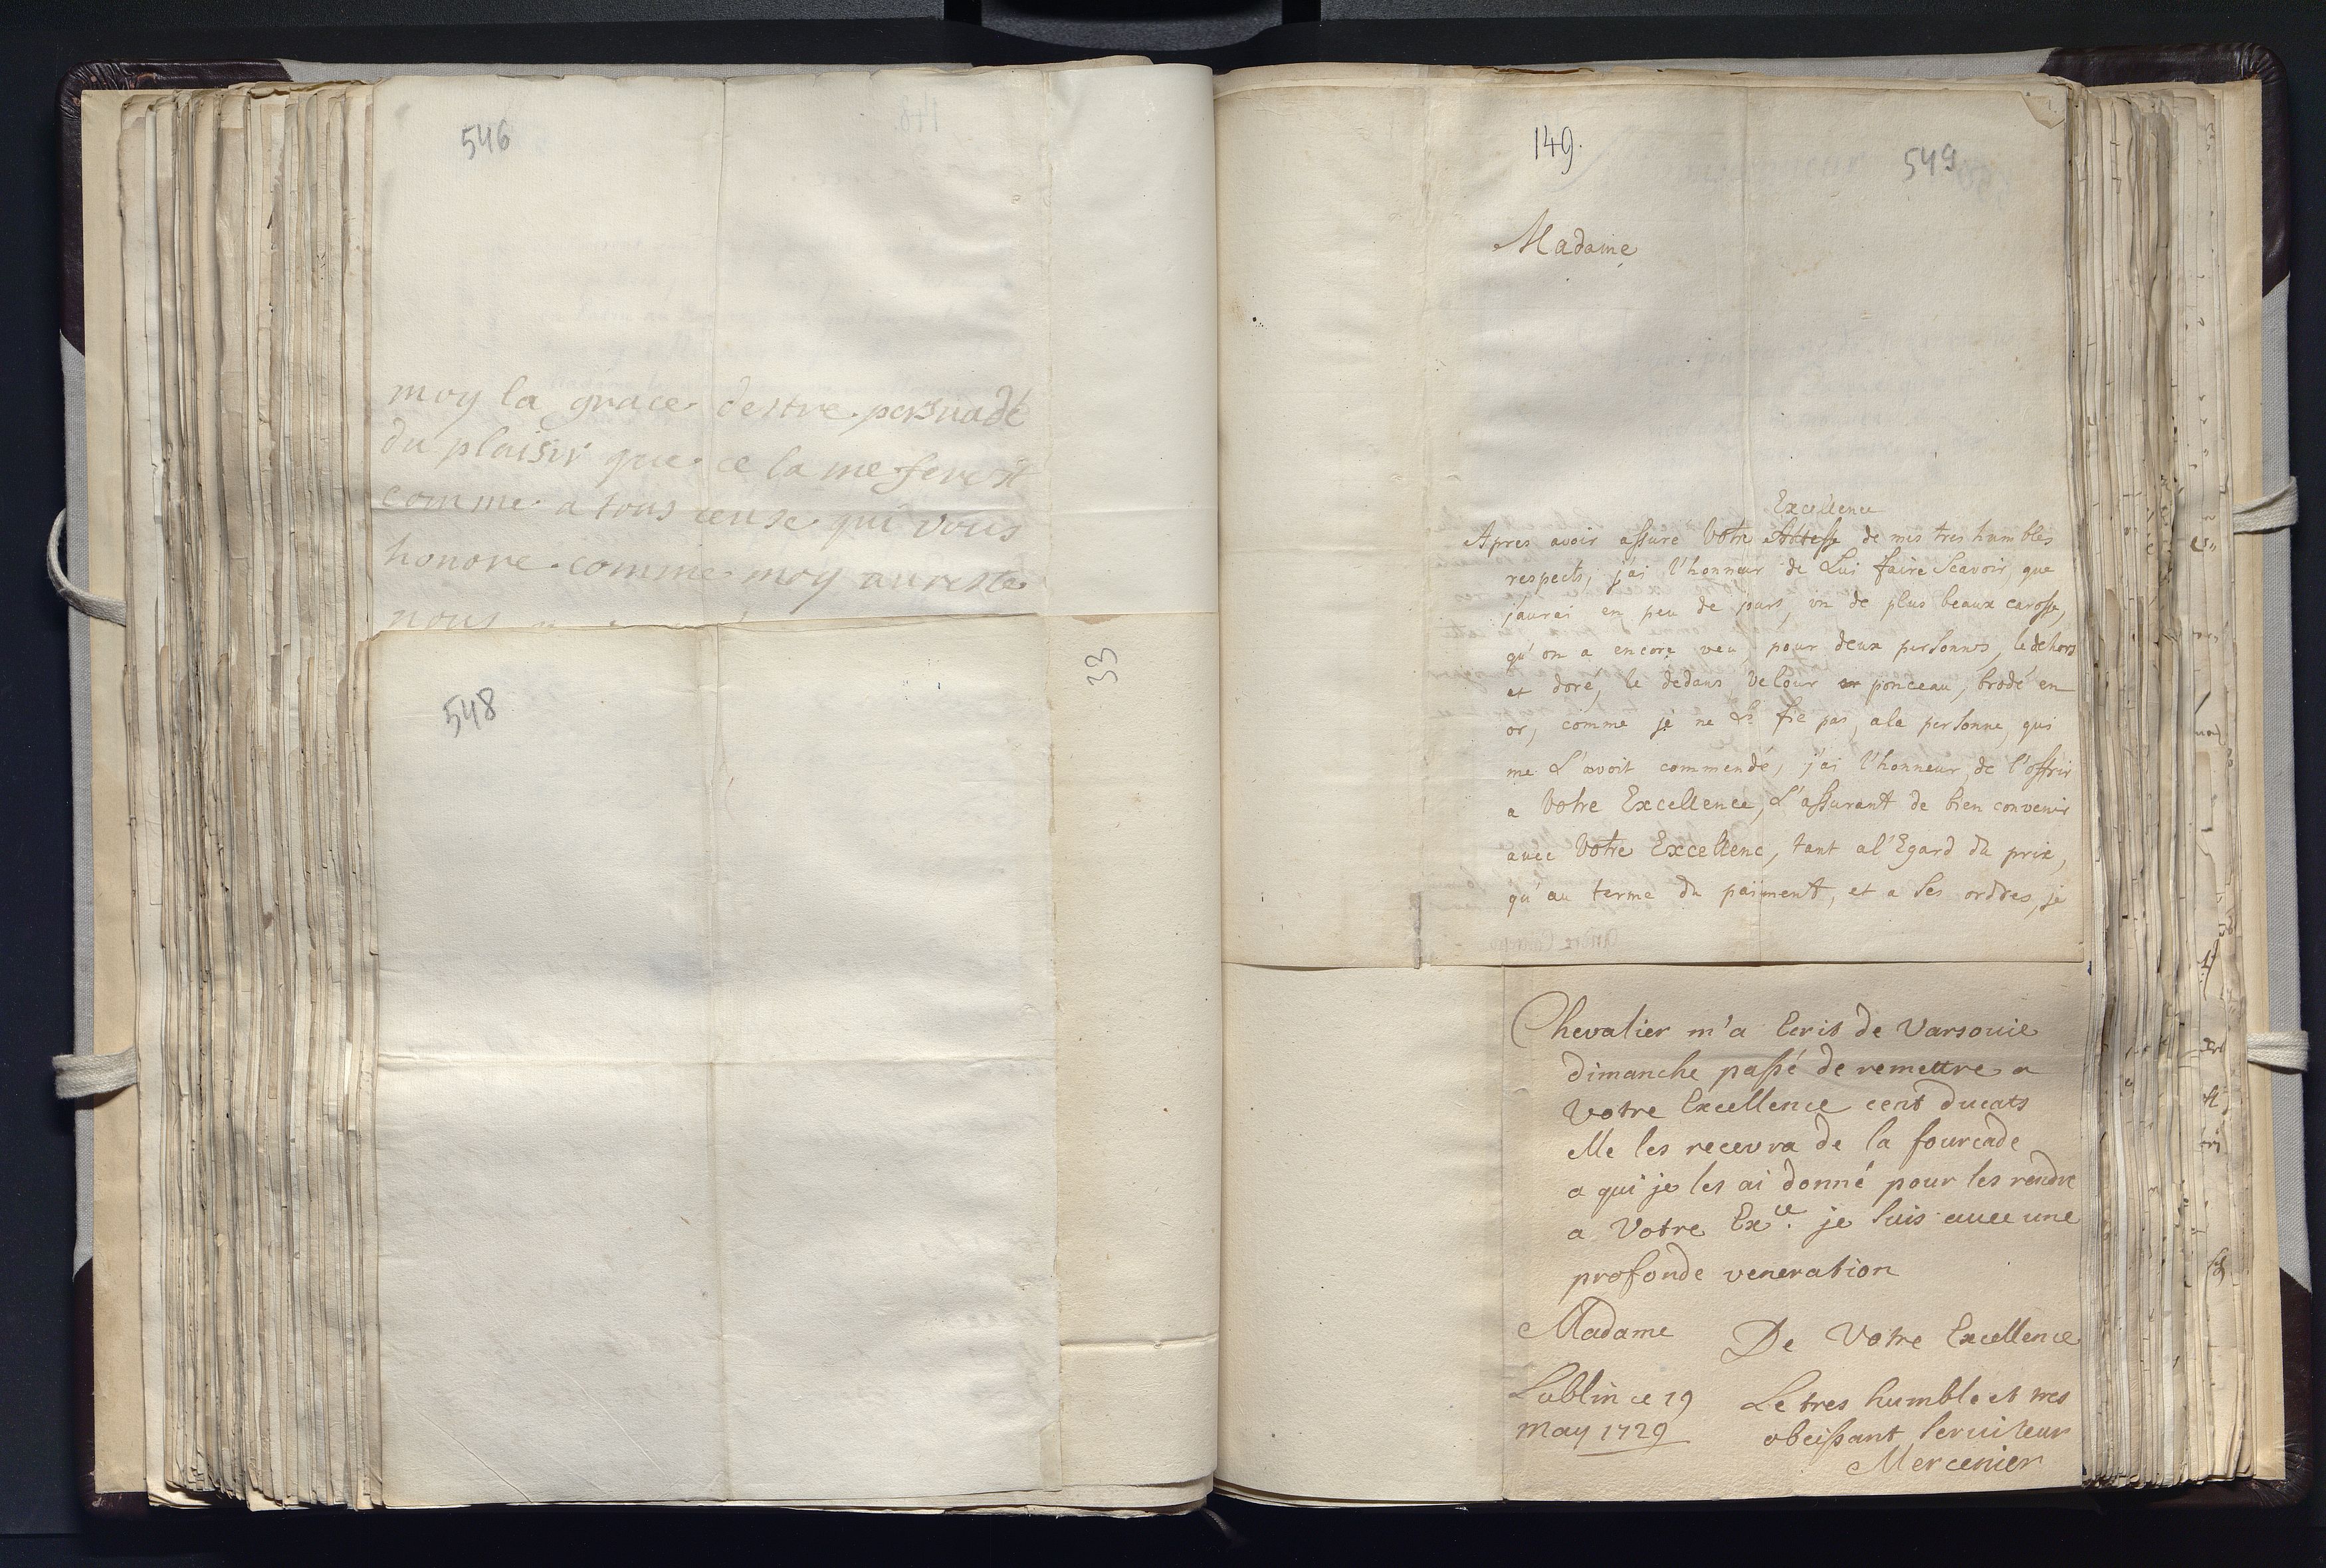 546
moy la grace destre persuadé
du plaisir que ce la me feroit
comme a tous ceuse qui vous
honore comme moy au reste
nous
548
33
149.
549
Madame
Excellence
Apres avoir assuré Votre Altesse de mes tres humbles
respects, j'ai l'honneur de Lui faire Scavoir, que
j'aurai en peu de jours, un de plus beaux carosse,
qu'on a encore veu, pour deux personnes, le dehors
et doré, le dedans velour ponceau, brodé en
or, comme je ne fie pas, a la personne, qui
me L'avoit commendé, j'ai l'honneur, de l'offrir
a Votre Excellence, L'assurant de bien convenir
avec Votre Excellenc, tant a l'Egard du prix,
qu'au terme du paiment, et a Ses orddes, je
Chevalier m'a Ecrit de Varsovie
dimanche passé de remettre a
Votre Excellence cent ducats
Elle les recevra de la fourcade
a qui je les ai donné pour les rendre
a Votre Exce. je suis avec une
profonde veneration
Madame De Votre Excellence
Lublin ce 19 Le tres humble et tres
May 1729 obeissant serviteur
Mercenier